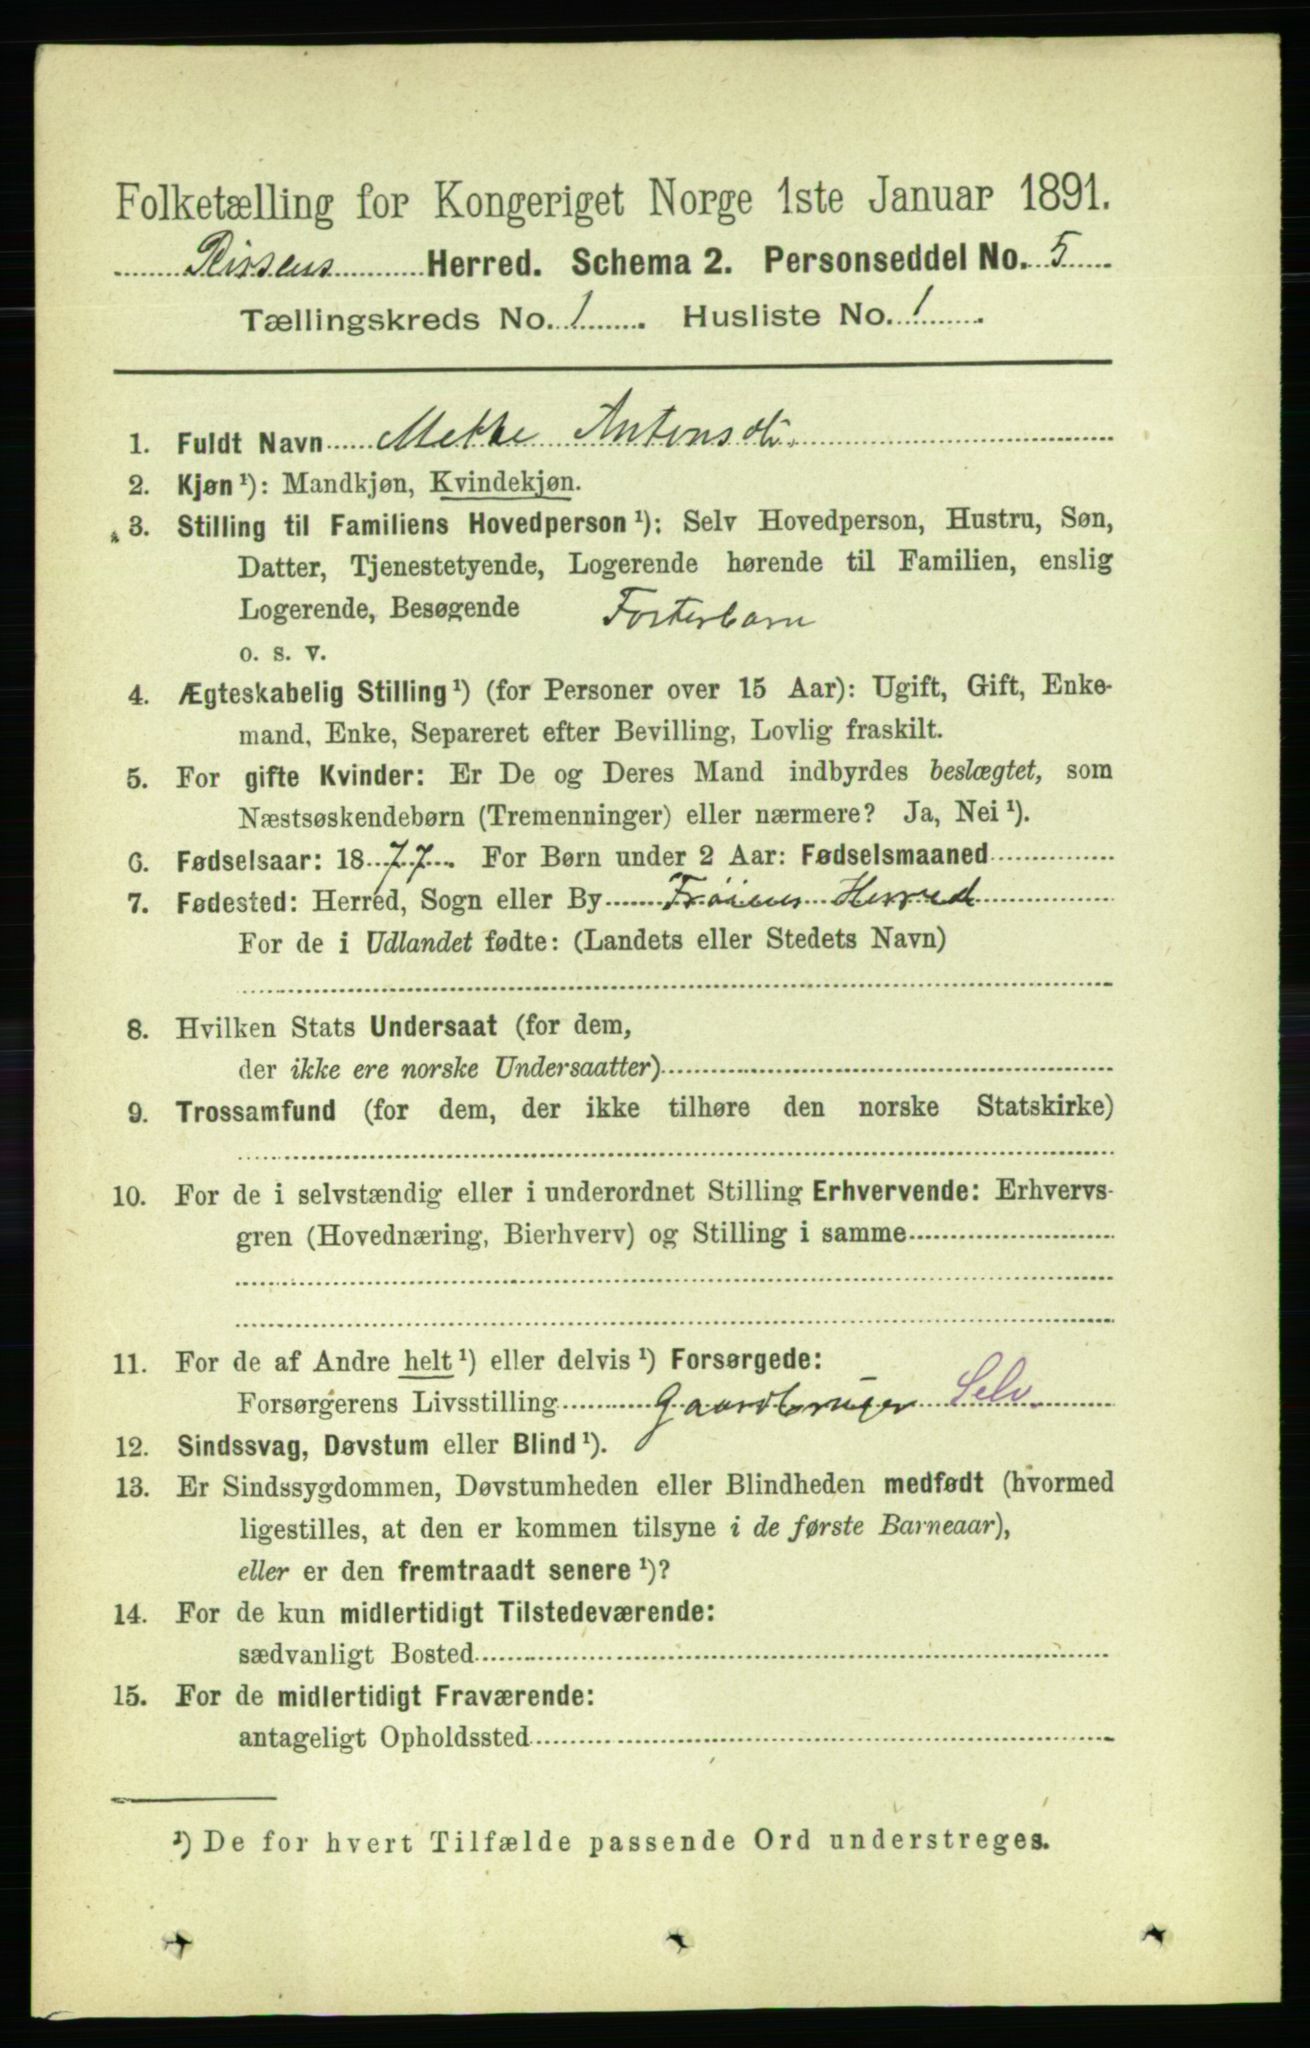 Folketælling for Kongeriget Norge 1ste Januar 1891.
Rissens Herred. Schema 2. Personseddel No. 5
Tællingskreds No. 1. Husliste No. 1.
1. Fuldt Navn Mette Antonsdtr.
2. Kjøn ¹): Mandkjøn, Kvindekjøn.
3. Stilling til Familiens Hovedperson ¹): Selv Hovedperson, Hustru, Søn,
Datter, Tjenestetyende, Logerende hørende til Familien, enslig
Logerende, Besøgende Fosterbarn
o. s. v.
4. Ægteskabelig Stilling ¹) (for Personer over 15 Aar): Ugift, Gift, Enke-
mand, Enke, Separeret efter Bevilling, Lovlig fraskilt.
5. For gifte Kvinder: Er De og Deres Mand indbyrdes beslægtet, som
Næstsøskendebørn (Tremenninger) eller nærmere? Ja, Nei ¹).
6. Fødselsaar: 1877. For Børn under 2 Aar: Fødselsmaaned
7. Fødested: Herred, Sogn eller By Frøiens Herred
For de i Udlandet fødte: (Landets eller Stedets Navn)
8. Hvilken Stats Undersaat (for dem,
der ikke ere norske Undersaatter)
9. Trossamfund (for dem, der ikke tilhøre den norske Statskirke)
10. For de i selvstændig eller i underordnet Stilling Erhvervende: Erhvervs-
gren (Hovednæring, Bierhverv) og Stilling i samme
11. For de af Andre helt ¹) eller delvis ¹) Forsørgede:
Forsørgerens Livsstilling Gaardbruger Selv.
12. Sindssvag, Døvstum eller Blind ¹).
13. Er Sindssygdommen, Døvstumheden eller Blindheden medfødt (hvormed
ligestilles, at den er kommen tilsyne i de første Barneaar),
eller er den fremtraadt senere ¹)?
14. For de kun midlertidigt Tilstedeværende:
sædvanligt Bosted
15. For de midlertidigt Fraværende:
antageligt Opholdssted
¹) De for hvert Tilfælde passende Ord understreges.